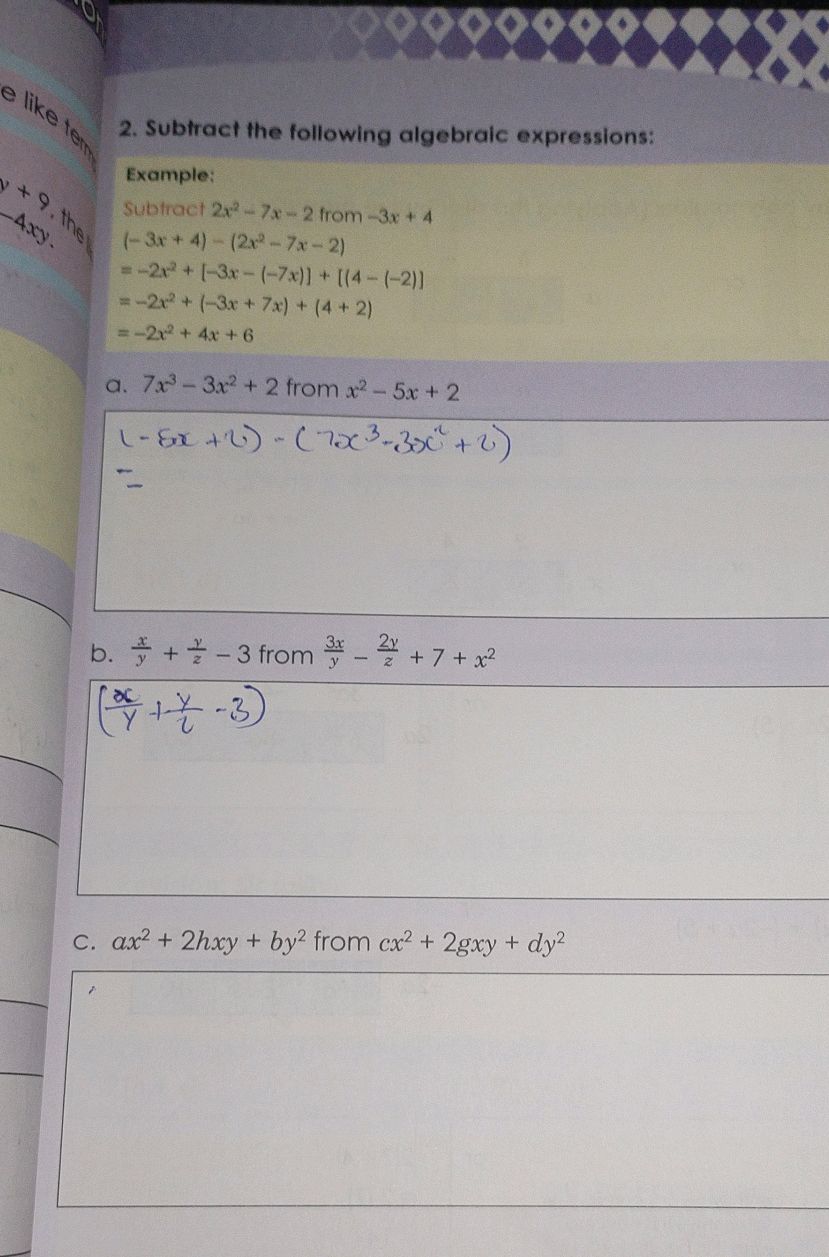 e like term
y + 9, the
–4xy.
2. Subtract the following algebraic expressions:
Example:
Subtract 2x² – 7x – 2 from –3x + 4
(– 3x + 4) – (2x² – 7x – 2)
= –2x² + [–3x – (–7x)] + [(4 – (–2)]
= –2x² + (–3x + 7x) + (4 + 2)
= –2x² + 4x + 6
a. 7x³ – 3x² + 2 from x² – 5x + 2
(-5x + 2) - (7x³ - 3x² + 2)
=
b. x/y + y/z – 3 from 3x/y – 2y/z + 7 + x²
(x/y + y/z - 3)
c. ax² + 2hxy + by² from cx² + 2gxy + dy²